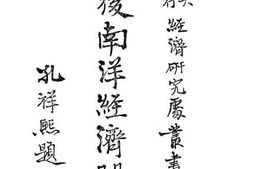 行經濟研究處叢書
後南洋經濟問
孔祥熙題